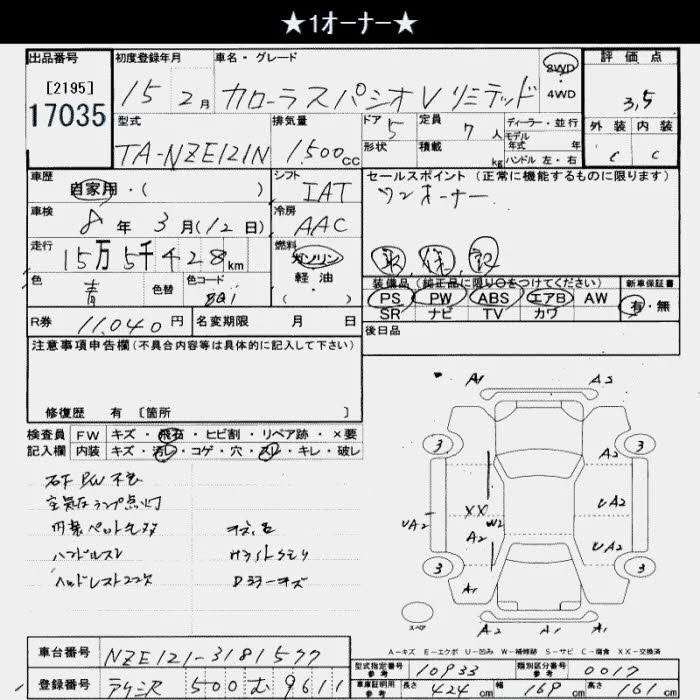 ★1オーナー★
出品番号 初度登録年月 車名・グレード 2WD 4WD 評価点
[2195] 17035 15 2月 カローラスパシオV リミテッド 3,5
型式 排気量 ドア 5 定員 7人 ディーラー・並行 外装 内装
TA-NZE121N 1,500cc 形状 積載 kg モデル年式 年 ハンドル 左・右 C C
車歴 シフト セールスポイント (正常に機能するものに限ります)
自家用・( ) IAT ワンオーナー
車検 8年 3月(12日) 冷房 AAC
走行 15万5千428km 燃料 ガソリン 軽油 ( ) 取 保 記
色 青 色替 色コード 8Q1 装備品(純正品に限り○をつけてください) 新車保証書
PS PW ABS エアB AW 有・無
SR ナビ TV カワ
R券 11,040円 名変期限 月 日 後日品
注意事項申告欄(不具合内容等は具体的に記入して下さい)
修復歴 有 [箇所 ]
検査員 FW キズ・飛石・ヒビ割・リペア跡・×要
記入欄 内装 キズ・汚レ・コゲ・穴・スレ・キレ・破レ
空気圧ランプ点灯
ハンドルスレ
A1 A3
3 3
A2
XX UA2
UA2 W2
A2 UA2
3 3
A1 A1
スペア A2 A1
A-キズ E-エクボ U-凹み W-補修跡 S-サビ C-腐食 XX-交換済
車台番号 NZE121-3181577
型式指定番号 参考 10933 類別区分番号 参考 0017
登録番号 500 む 9611
車庫証明用 参考 長さ 424cm 幅 169cm 高さ 161cm